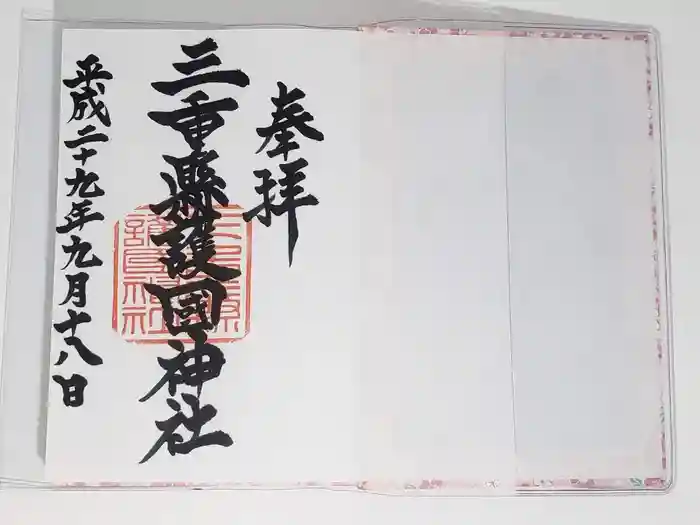 奉拝
三重縣護國神社
平成二十九年九月十八日